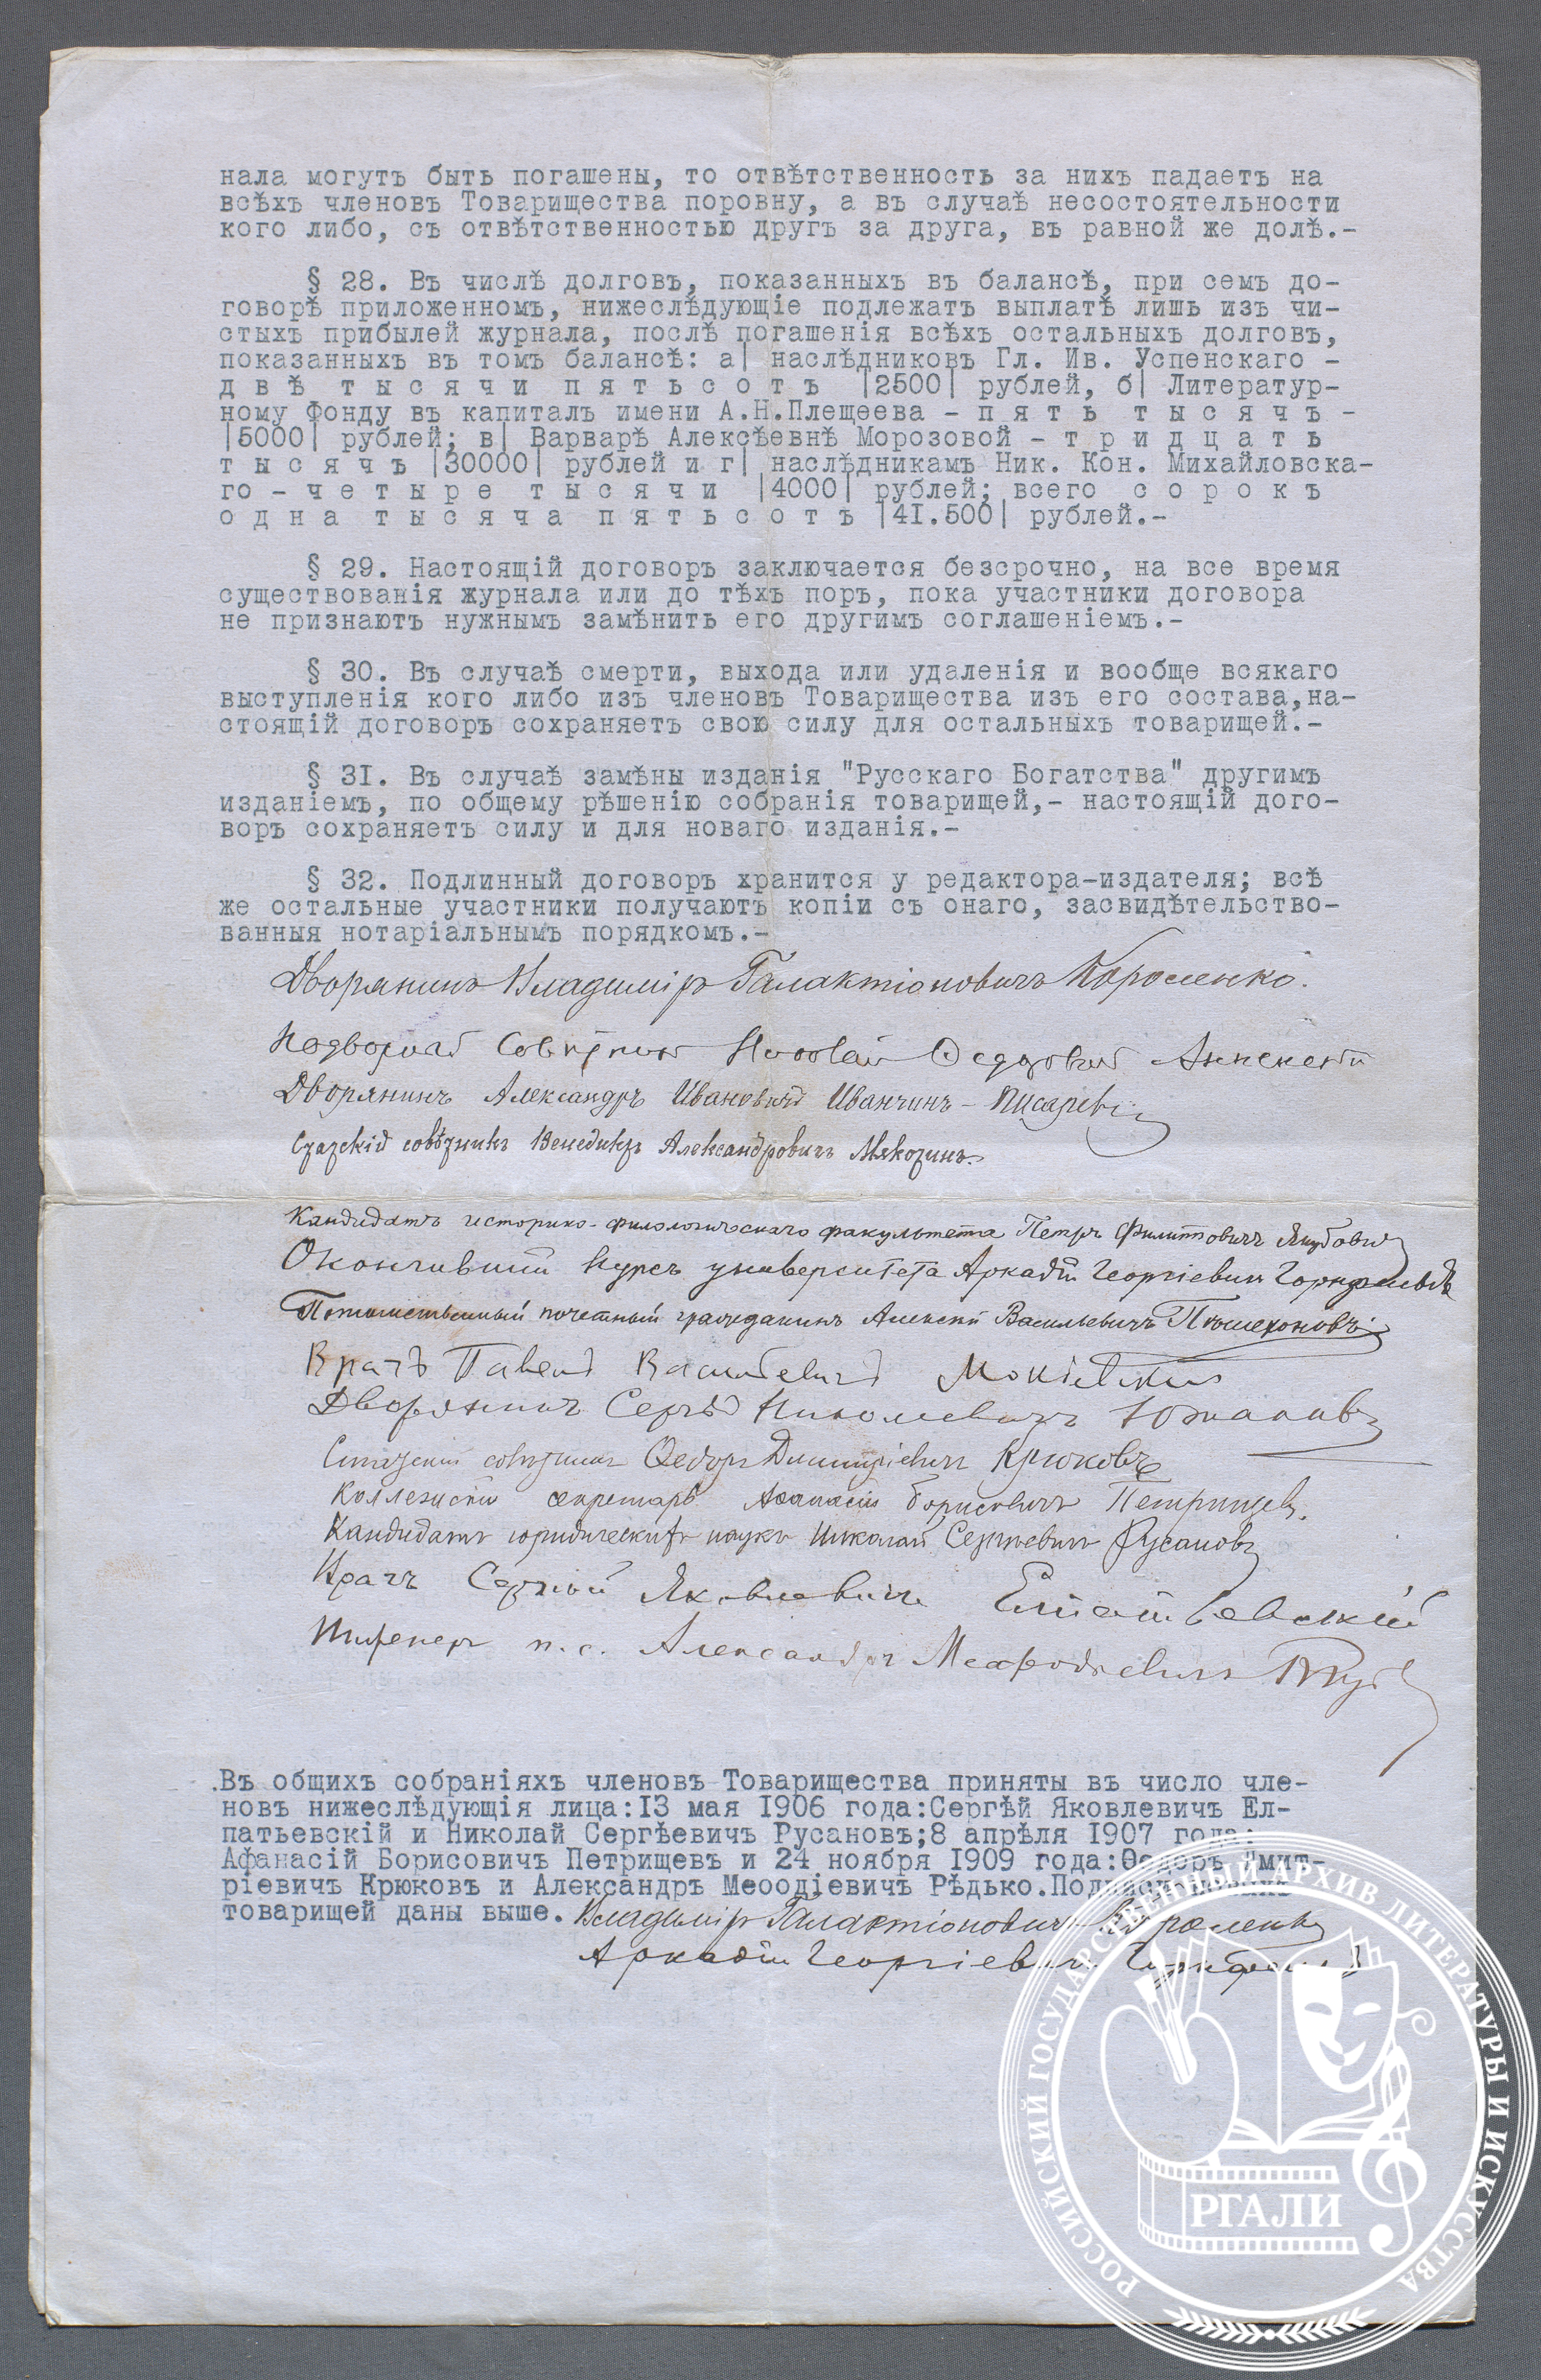 нала могутъ быть погашены, то отвѣтственность за нихъ падаетъ на
всѣхъ членовъ Товарищества поровну, а въ случаѣ несостоятельности
кого либо, съ отвѣтственностью другъ за друга, въ равной же долѣ.-
§ 28. Въ числѣ долговъ, показанныхъ въ балансѣ, при семъ до-
говорѣ приложенномъ, нижеслѣдующіе подлежатъ выплатѣ лишь изъ чи-
стыхъ прибылей журнала, послѣ погашенія всѣхъ остальныхъ долговъ,
показанныхъ въ томъ балансѣ: а| наслѣдниковъ Гл. Ив. Успенскаго -
двѣ тысячи пятьсотъ |2500| рублей, б| Литератур-
ному Фонду въ капиталъ имени А.Н.Плещеева - пять тысячъ -
|5000| рублей; в| Варварѣ Алексѣевнѣ Морозовой - тридцать
тысячъ |30000| рублей и г| наслѣдникамъ Ник. Кон. Михайловска-
го - четыре тысячи |4000| рублей; всего сорокъ
одна тысяча пятьсотъ |41.500| рублей.-
§ 29. Настоящій договоръ заключается безсрочно, на все время
существованія журнала или до тѣхъ поръ, пока участники договора
не признаютъ нужнымъ замѣнить его другимъ соглашеніемъ.-
§ 30. Въ случаѣ смерти, выхода или удаленія и вообще всякаго
выступленія кого либо изъ членовъ Товарищества изъ его состава,на-
стоящій договоръ сохраняетъ свою силу для остальныхъ товарищей.-
§ 31. Въ случаѣ замѣны изданія "Русскаго Богатства" другимъ
изданіемъ, по общему рѣшенію собранія товарищей,- настоящій дого-
воръ сохраняетъ силу и для новаго изданія.-
§ 32. Подлинный договоръ хранится у редактора-издателя; всѣ
же остальные участники получаютъ копіи съ онаго, засвидѣтельство-
ванныя нотаріальнымъ порядкомъ.-
Дворянинъ Владиміръ Галактіоновичъ Короленко.
Надворный Совѣтникъ Николай Ѳедоровичъ Анненскій
Дворянинъ Александръ Ивановичъ Иванчинъ-Писаревъ
Статскій совѣтникъ Венедиктъ Александровичъ Мякотинъ.
Кандидатъ историко-филологическаго факультета Петръ Филипповичъ Якубовичъ
Окончившій курсъ университета Аркадій Георгіевичъ Горнфельдъ
Потомственный почетный гражданинъ Алексѣй Васильевичъ Пѣшехоновъ
Врачъ Павелъ Васильевичъ Мокіевскій
Дворянинъ Сергѣй Николаевичъ Южаковъ
Статскій совѣтникъ Ѳедоръ Дмитріевичъ Крюковъ
Коллежскій секретарь Афанасій Борисовичъ Петрищевъ.
Кандидатъ юридическихъ наукъ Николай Сергѣевичъ Русановъ
Врачъ Сергѣй Яковлевичъ Елпатьевскій
Инженеръ п.с. Александръ Меѳодіевичъ Рѣдько
.Въ общихъ собраніяхъ членовъ Товарищества приняты въ число чле-
новъ нижеслѣдующія лица:13 мая 1906 года:Сергѣй Яковлевичъ Ел-
патьевскій и Николай Сергѣевичъ Русановъ;8 апрѣля 1907 года:
Афанасій Борисовичъ Петрищевъ и 24 ноября 1909 года:Ѳедоръ Дмит-
ріевичъ Крюковъ и Александръ Меоодіевичъ Рѣдько.
товарищей даны выше. Владиміръ Галактіоновичъ Короленко
Аркадій Георгіевичъ Горнфельдъ
РОССИЙСКИЙ ГОСУДАРСТВЕННЫЙ АРХИВ ЛИТЕРАТУРЫ И ИСКУССТВА
РГАЛИ